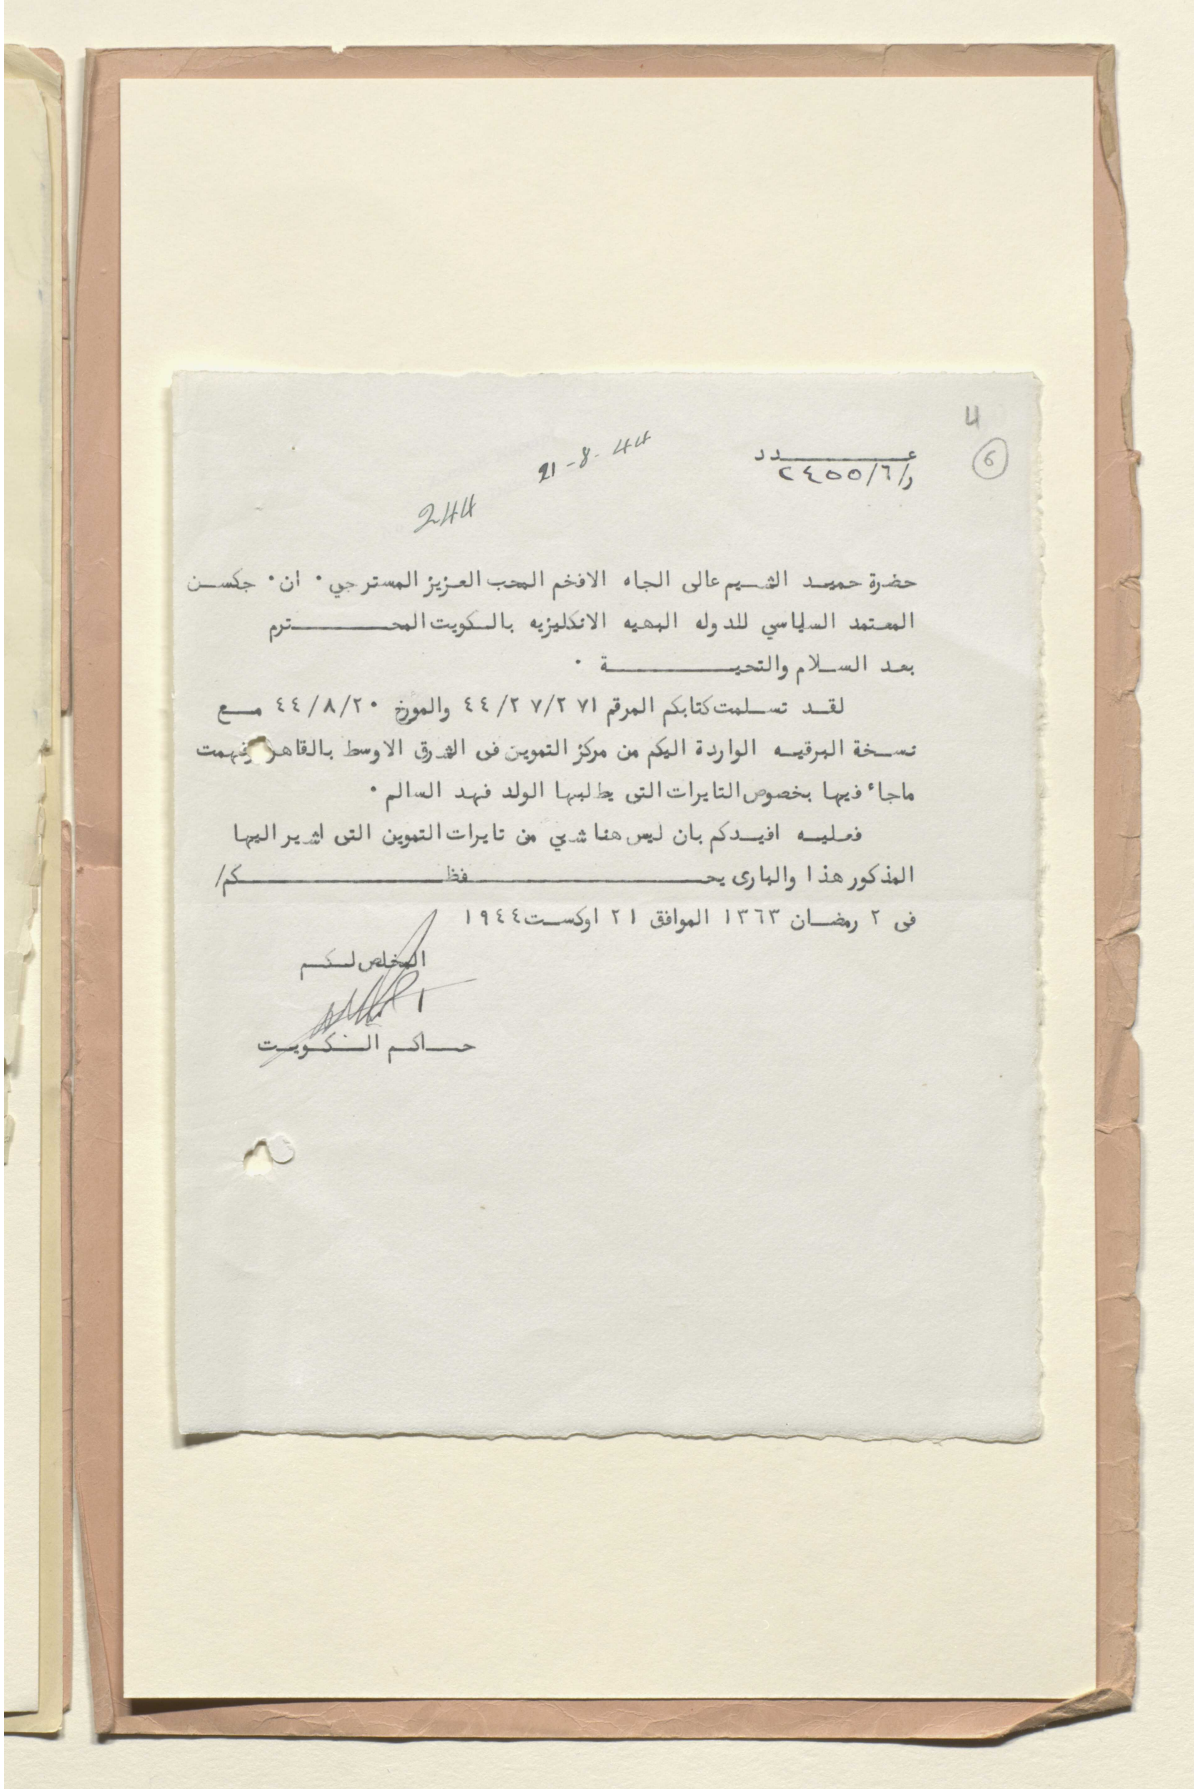 4
6
عـــــدد
ر/٢٤٥٥/٦
21-8-44
244
حضرة حميد الشيم عالى الجاه الافخم المحب العزيز المستر جي٠ ان٠ جكسن
المعتمد السياسي للدوله البهيه الانكليزيه بالكويت المحـــــــترم
بعد السلام والتحيـــــــة ٠
لقد تسلمت كتابكم المرقم ٤٤/٢٧/٢٧١ والمورخ ٤٤/٨/٢٠ مع
نسخة البرقيه الواردة اليكم من مركز التموين فى الشرق الاوسط بالقاهر وفهمت
ماجاء فيها بخصوص التايرات التى يطلبها الولد فهد السالم ٠
فعليه افيدكم بان ليس هنا شيي من تايرات التموين التى اشير اليها
المذكور هذا والبارى يحـــــــفظـــــــكم/
فى ٢ رمضان ١٣٦٣ الموافق ٢١ اوكست ١٩٤٤
المخلص لكم
حاكم الكويت